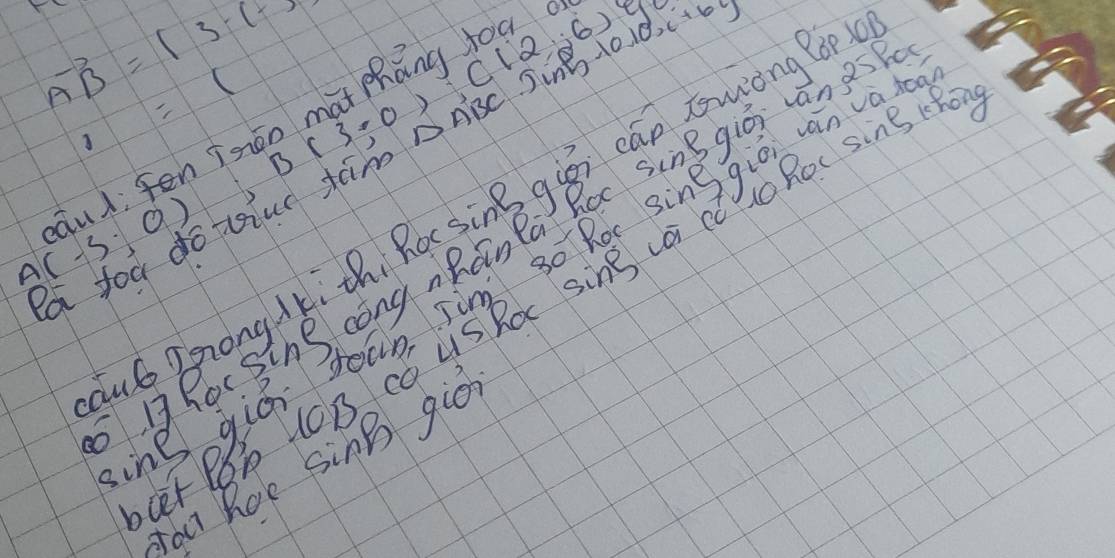 AB = (3-(-3
= (
câu 1: Trên mặt phẳng toạ
A(-3; 0), B(3; 0), C(2; 6)
là toạ độ trực tâm △ABC Tính
câu 6 Trong 1 kì thi học sinh giỏi cấp trường lớp 10B
có 17 học sinh công nhận là học sinh giỏi văn 25 học
sinh giỏi toán, Tìm số học sinh giỏi văn và toán
biết lớp 10B có 45 học sinh và có 10 học sinh không
đạt học sinh giỏi